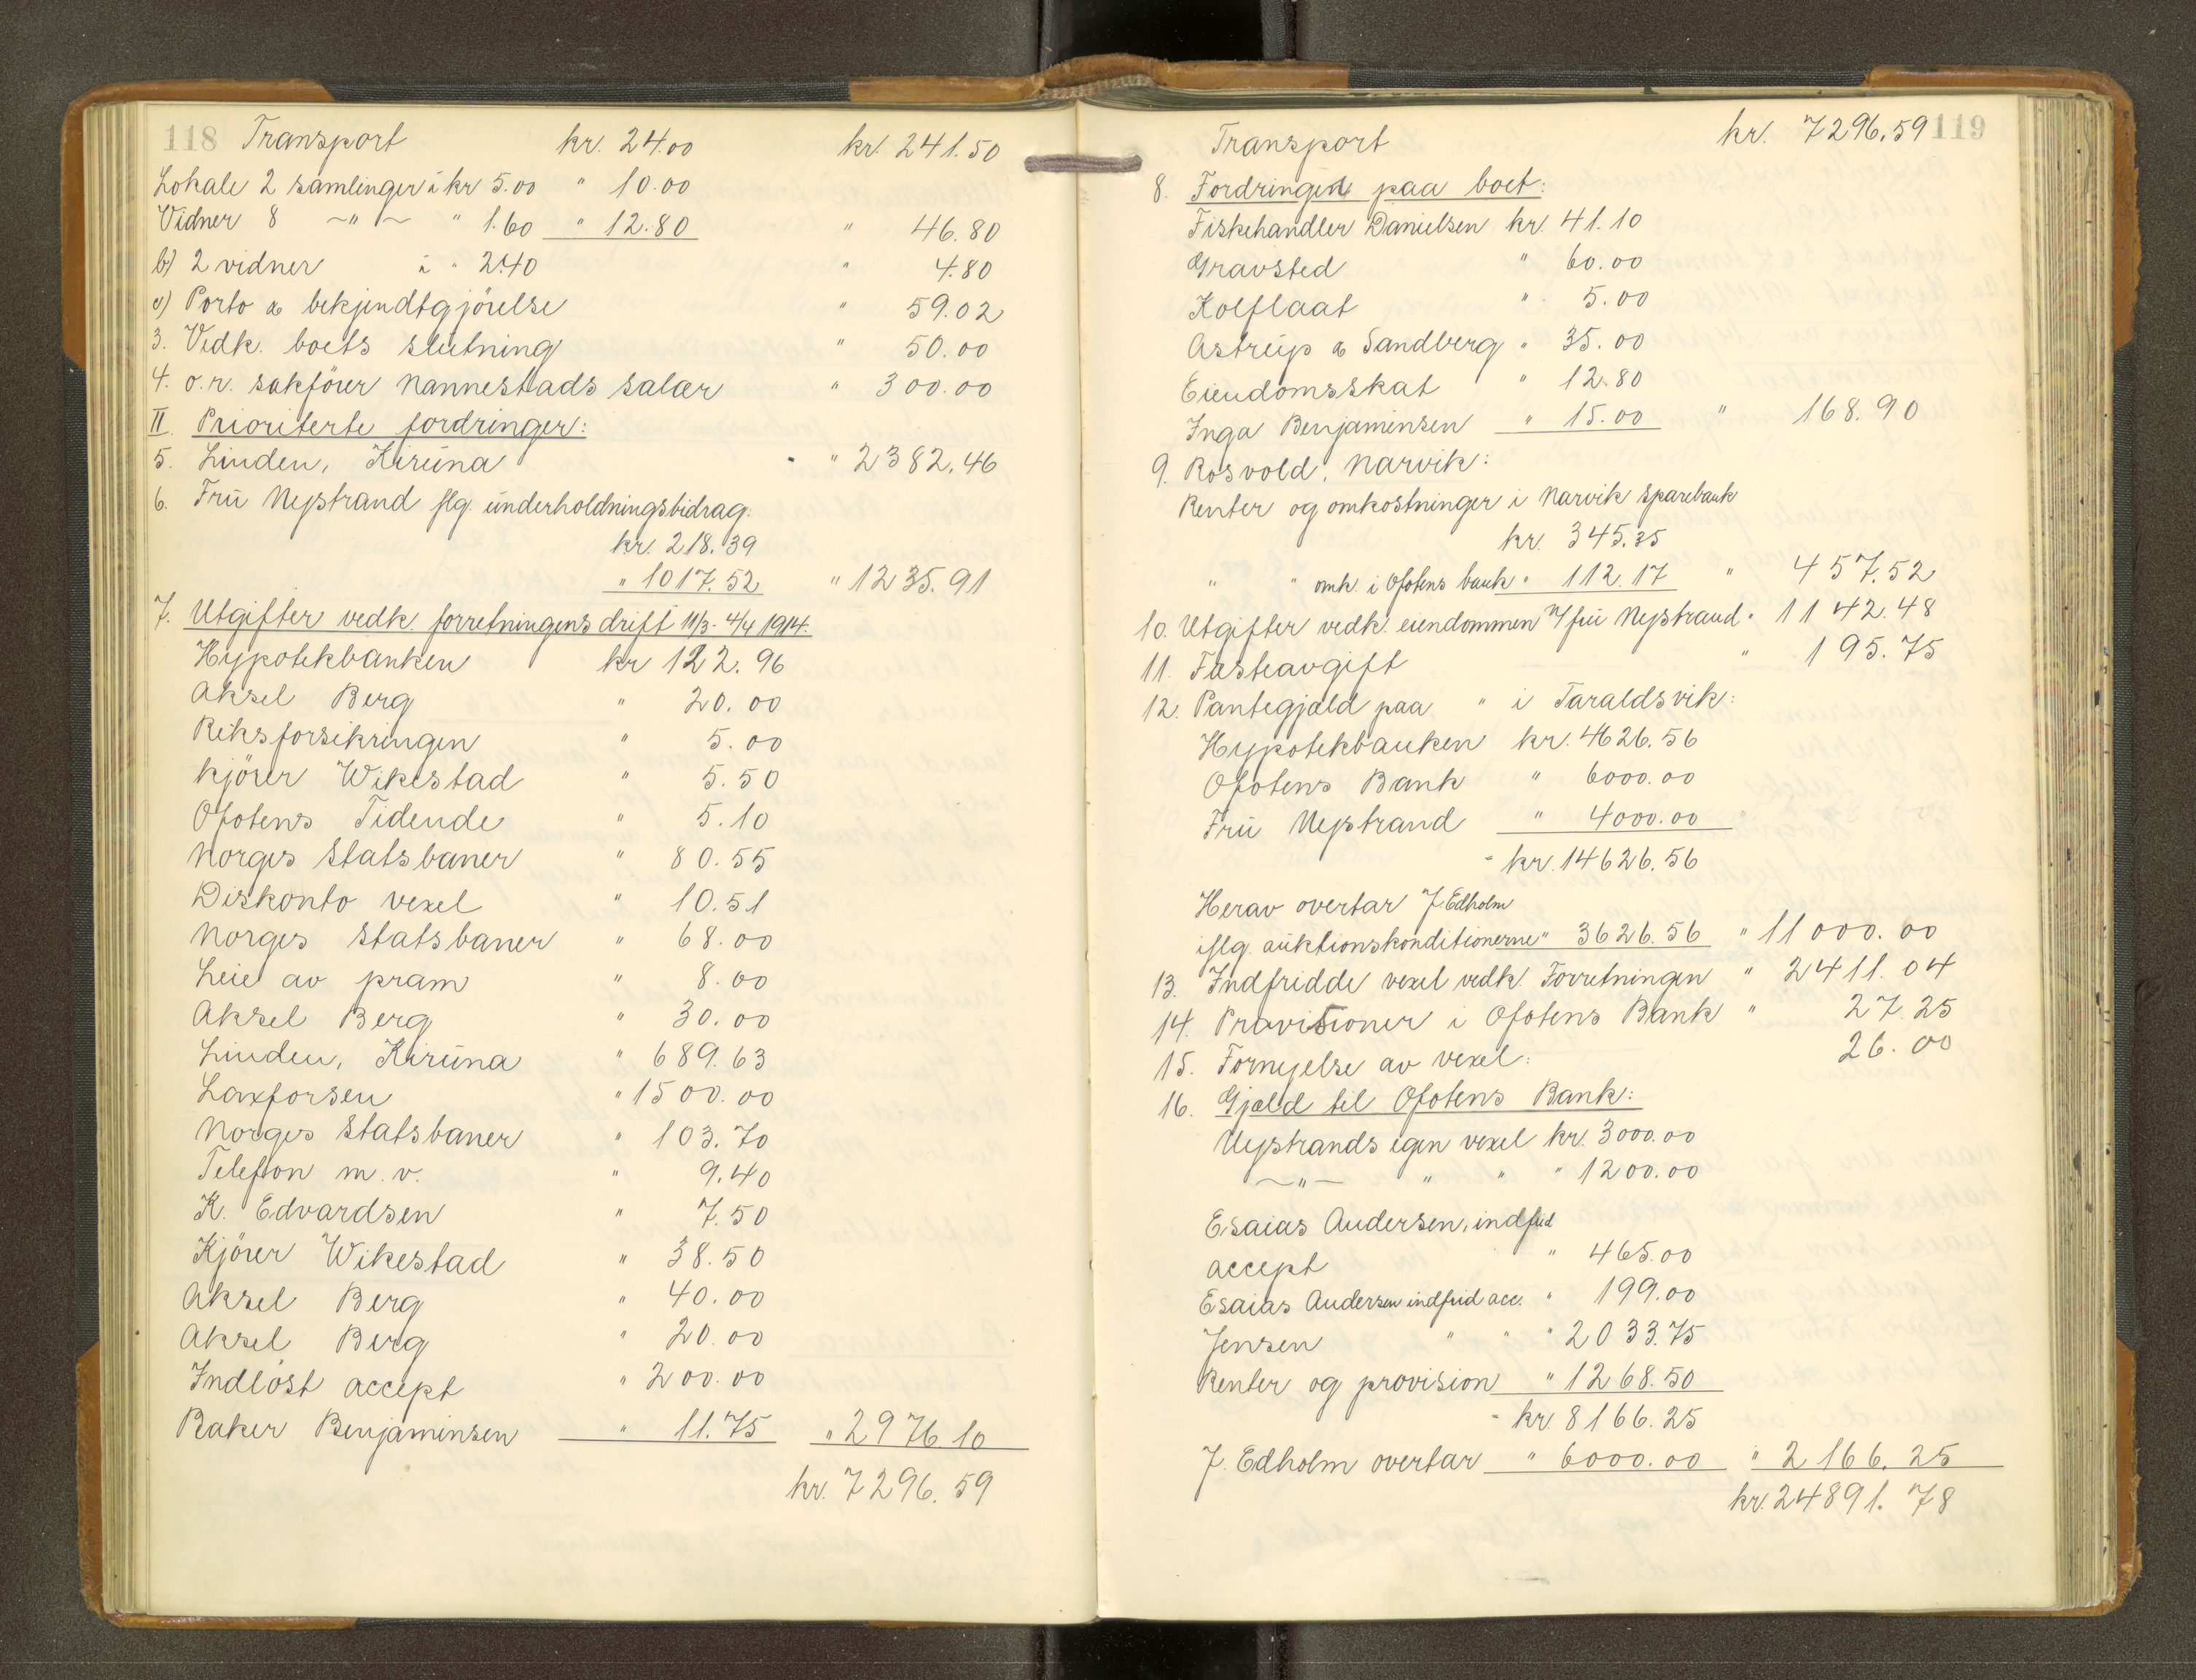 118 Transport kr. 24.00 kr. 241.50
Lokale 2 samlinger à kr 5.00 " 10.00
Vidner 8 ~"~ " 1.60 " 12.80 " 46.80
b) 2 vidner à " 2.40 " 4.80
c) Porto & bekjendtgjörelse " 59.02
3. Vedk. boets slutning " 50.00
4. o.r. sakförer Nannestads salær " 300.00
II. Prioriterte fordringer:
5. Linden, Kiruna " 2382.46
6. Fru Nystrand flg. underholdningsbidrag.
kr. 218.39
" 1017.52 " 1235.91
7. Utgifter vedk. forretningens drift 11/3 - 4/4 1914.
Hypotekbanken kr 122.96
Aksel Berg " 20.00
Riksforsikringen " 5.00
Kjörer Wikestad " 5.50
Ofotens Tidende " 5.10
Norges Statsbaner " 80.55
Diskonto vexel " 10.51
Norges Statsbaner " 68.00
Leie av pram " 8.00
Aksel Berg " 30.00
Linden, Kiruna " 689.63
Laxforsen " 1500.00
Norges Statsbaner " 103.70
Telefon m.v. " 9.40
K. Edvardsen " 7.50
Kjörer Wikestad " 38.50
Aksel Berg " 40.00
Aksel Berg " 20.00
Indlöst accept " 200.00
Baker Benjaminsen " 11.75 " 2976 10
kr. 7296.59
Transport kr. 7296.59 119
8. Fordringer paa boet:
Fiskehandler Danielsen kr. 41.10
Gravsted " 60.00
Kolflaat " 5.00
Astrup & Sandberg " 35.00
Eiendomsskat " 12.80
Inga Benjaminsen " 15.00 " 168.90
9. Rosvold, Narvik:
Renter og omkostninger i Narvik sparebank
kr. 345.35
" " omk. i Ofotens bank " 112.17 " 457.52
10. Utgifter vedk. eiendommen v/fru Nystrand " 1142.48
11. Fasteavgift " 195.75
12. Pantegjæld paa " i Taraldsvik:
Hypotekbanken kr. 4626.56
Ofotens Bank " 6000.00
Fru Nystrand " 4000.00
kr. 14626.56
Herav overtar J. Edholm
iflg. auktionskonditionerne " 3626.56 " 11000.00
13. Indfridde vexel vedk. Forretningen " 2411.04
14. Provisioner i Ofotens Bank " 27.25
15. Fornyelse av vexel: 26.00
16. Gjæld til Ofotens Bank:
Nystrands egen vexel kr. 3000.00
~"~ " " " 1200.00
Esaias Andersen, indfrid
accept " 465.00
Esaias Andersen indfrid acc. " 199.00
Jensen " " " 2033.75
Renter og provision " 1268.50
kr. 8166.25
J. Edholm overtar " 6000.00 " 2166.25
kr. 24891.78